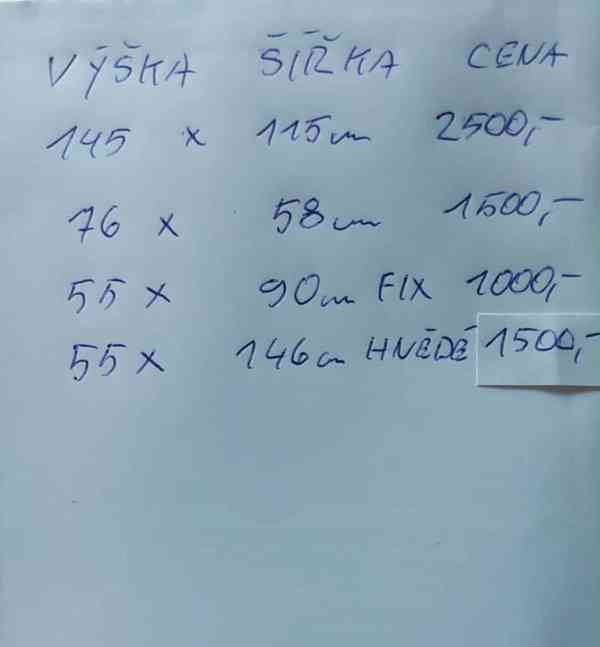 VÝŠKA ŠÍŘKA CENA
145 x 115cm 2500,-
76 x 58cm 1500,-
55 x 90cm FIX 1000,-
55 x 146cm HNĚDÉ 1500,-